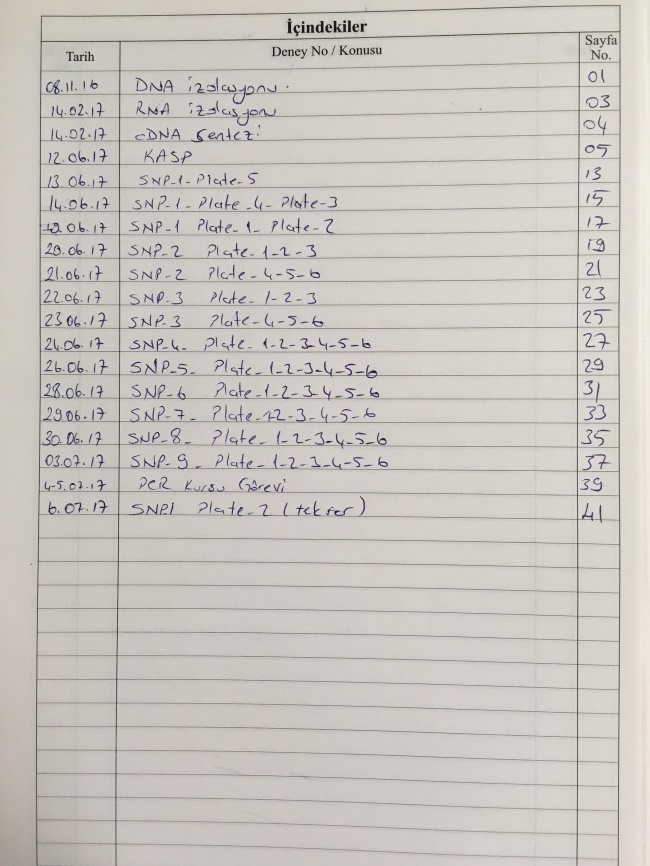 İçindekiler
Tarih Deney No / Konusu Sayfa No.
08.11.16 DNA izolasyonu. 01
14.02.17 RNA izolasyonu 03
14.02.17 cDNA Sentezi 04
12.06.17 KASP 05
13.06.17 SNP-1-Plate-5 13
14.06.17 SNP-1-Plate-4-Plate-3 15
06.17 SNP-1 Plate-1-Plate-2 17
20.06.17 SNP-2 Plate-1-2-3 19
21.06.17 SNP-2 Plate-4-5-6 21
22.06.17 SNP-3 Plate-1-2-3 23
23.06.17 SNP-3 Plate-4-5-6 25
24.06.17 SNP-4- Plate-1-2-3-4-5-6 27
26.06.17 SNP-5- Plate-1-2-3-4-5-6 29
28.06.17 SNP-6 Plate-1-2-3-4-5-6 31
29.06.17 SNP-7- Plate-12-3-4-5-6 33
30.06.17 SNP-8- Plate-1-2-3-4-5-6 35
03.07.17 SNP-9- Plate-1-2-3-4-5-6 37
4-5.07.17 PCR Kursu Görevi 39
6.07.17 SNP1 Plate-2 (tekrar) 41